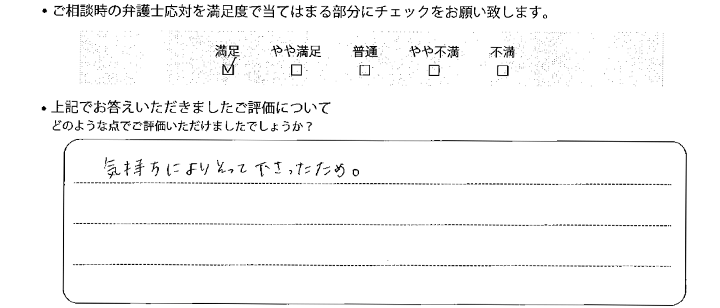 ・ご相談時の弁護士応対を満足度で当てはまる部分にチェックをお願い致します。
満足 やや満足 普通 やや不満 不満
☑ ☐ ☐ ☐ ☐
・上記でお答えいただきましたご評価について
どのような点でご評価いただけましたでしょうか？
気持ちによりそって下さったため。